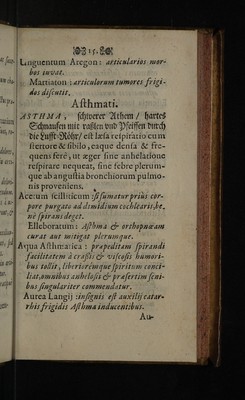 15.
Unguentum Aregon: articularios mor-
bos iuvat.
Martiaton: articulorum tumores frigi-
dos discutit.
Asthmati.
ASTHMA, schwerer Athem / hartes
Schnaufen mit raßlen vnd Pfeiffen durch
die Lufft-Röhr / est læsa respiratio cum
stertore & sibilo, eaque densa & fre-
quens ferè, ut æger sine anhelatione
respirare nequeat, sine febre plerum-
que ab angustia bronchiorum pulmo-
nis proveniens.
Acetum scilliticum: si sumatur prius cor-
pore purgato ad dimidium cochlearis, be-
nè spirans deget.
Elleboratum: Asthma & orthopnœam
curat aut mitigat plerumque.
Aqua Asthmatica: præpeditam spirandi
facilitatem à crassis & viscosis humori-
bus tollit, liberioremque spiritum conci-
liat, omnibus anhelosis & præsertim seni-
bus singulariter commendatur.
Aurea Langij: insignis est auxilij catar-
rhis frigidis Asthma inducentibus.
Au-